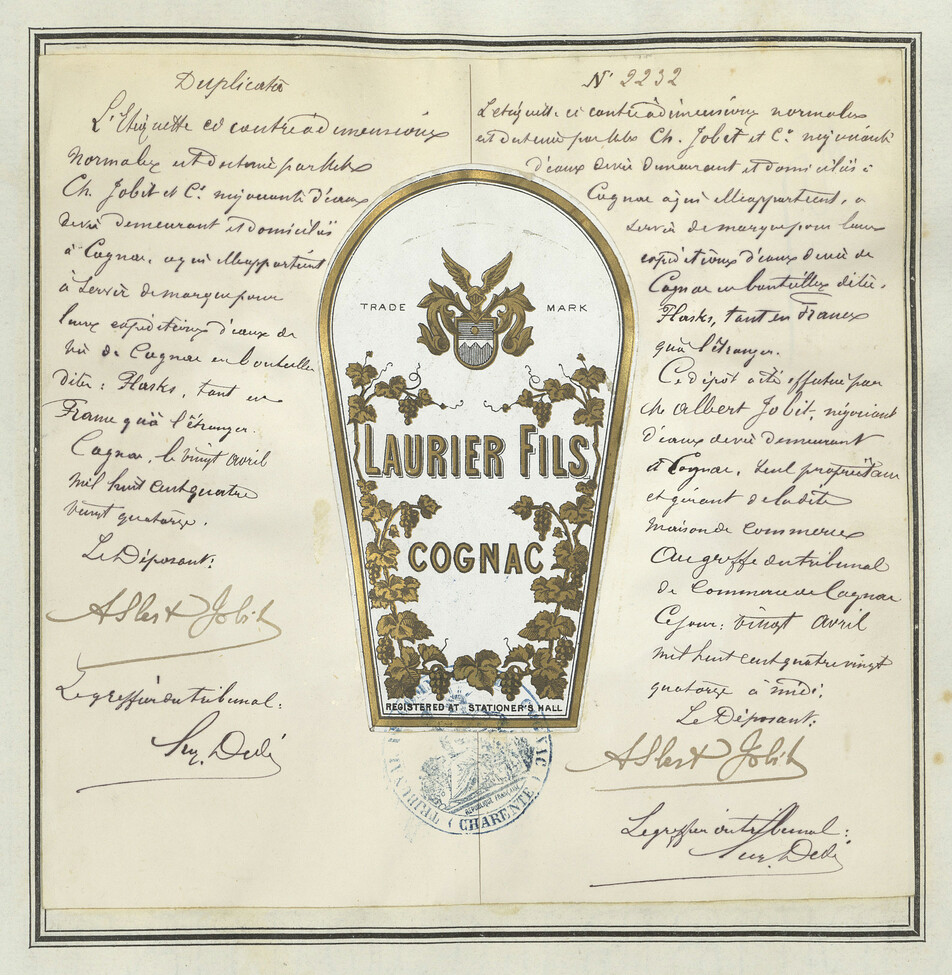 Duplicata
L'Etiquette ci contre à dimensions
normales est destinée par Mrs
Ch. Jobit et Cie négociants d'eaux
devie demeurant et domiciliés
à Cognac, et qui elle appartient
à servir de marque pour
leurs expéditions d'eaux de
vie de Cognac en bouteilles
dites : Flasks, tant en
France qu'à l'étranger.
Cognac, le vingt avril
mil huit cent quatre
vingt quatorze.
Le Déposant:
Albert Jobit
Le greffier du tribunal:
N° 2232
L'etiquette ci contre à dimensions normales
est destinée par Mrs Ch. Jobit et Cie négociants
d'eaux devie demeurant et domiciliés à
Cognac à qui elle appartient, à
servir de marque pour leurs
expéditions d'eaux devie de
Cognac en bouteilles dites:
Flasks, tant en France
qu'à l'étranger.
Ce dépôt a été effectué par
Albert Jobit, négociant
d'eaux devie demeurant
à Cognac, seul propriétaire
et gérant de ladite
maison de commerce
Au greffe du tribunal
de Commerce de Cognac
Ce jour: vingt avril
mil huit cent quatre vingt
quatorze à midi.
Le Déposant:
Albert Jobit
Le greffier du tribunal:
TRADE MARK
LAURIER FILS
COGNAC
REGISTERED AT STATIONER'S HALL
RÉPUBLIQUE FRANÇAISE
(CHARENTE)